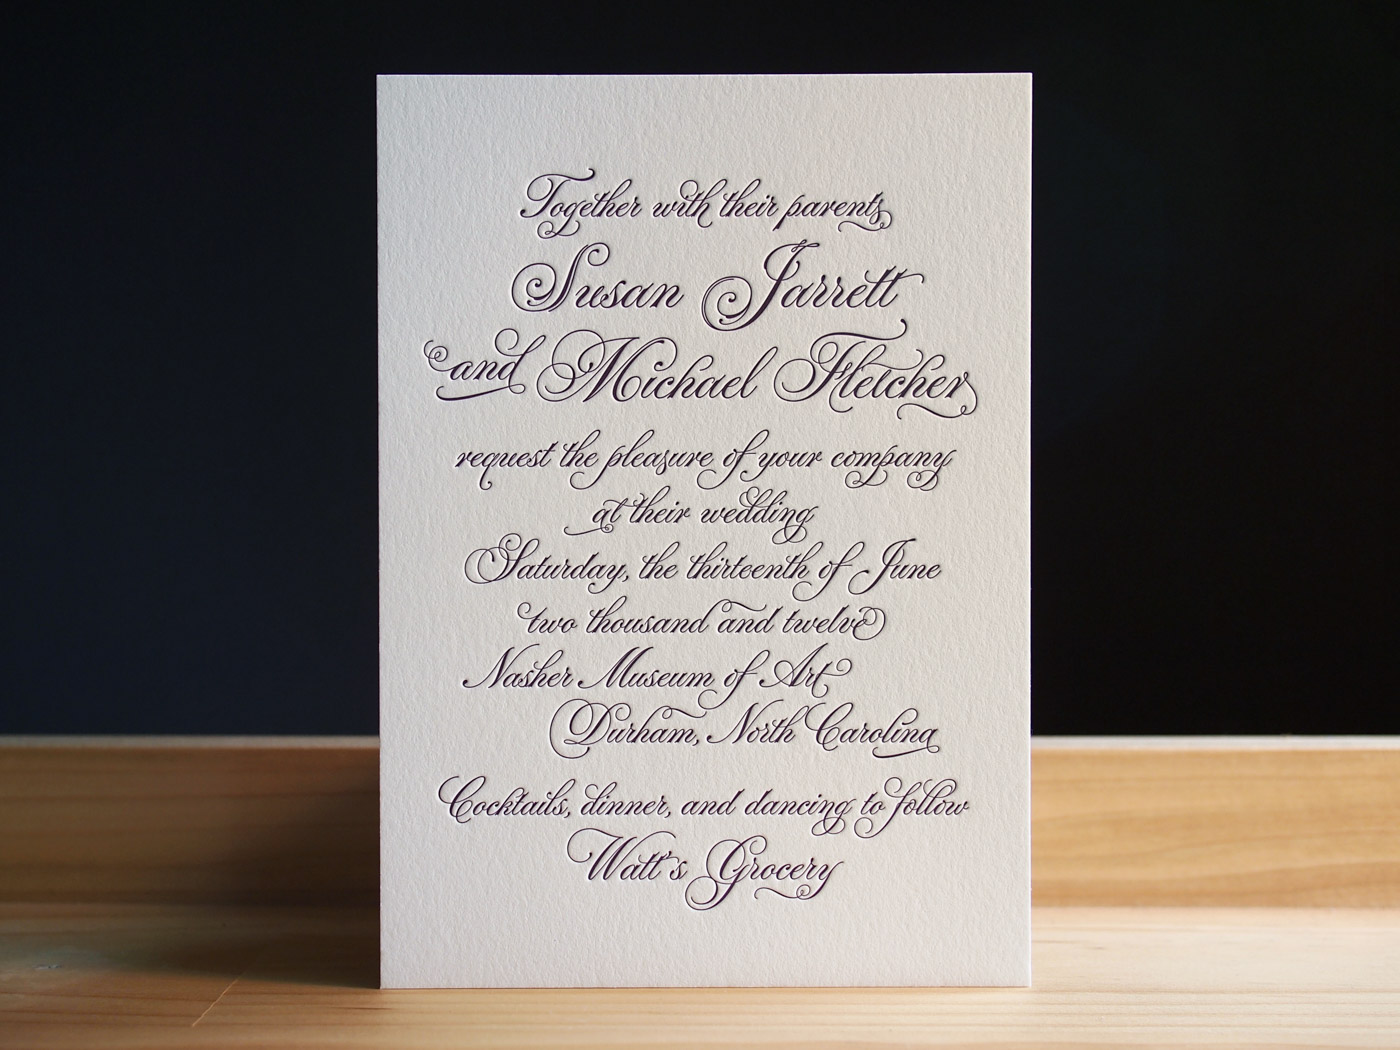 Together with their parents
Susan Jarrett
and Michael Fletcher
request the pleasure of your company
at their wedding
Saturday, the thirteenth of June
two thousand and twelve
Nasher Museum of Art
Durham, North Carolina
Cocktails, dinner, and dancing to follow
Watt's Grocery